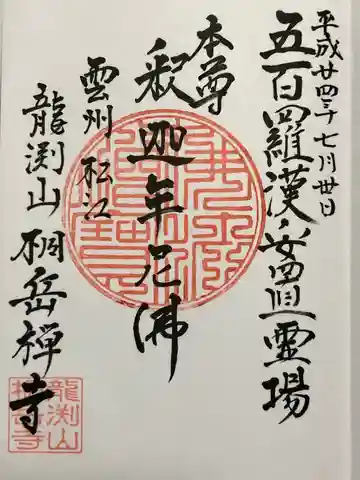 平成廿四年七月卅日
五百羅漢安置霊場
本尊
釋迦牟尼佛
雲州 松江
龍渕山 桐岳禅寺
龍渕山
桐岳寺